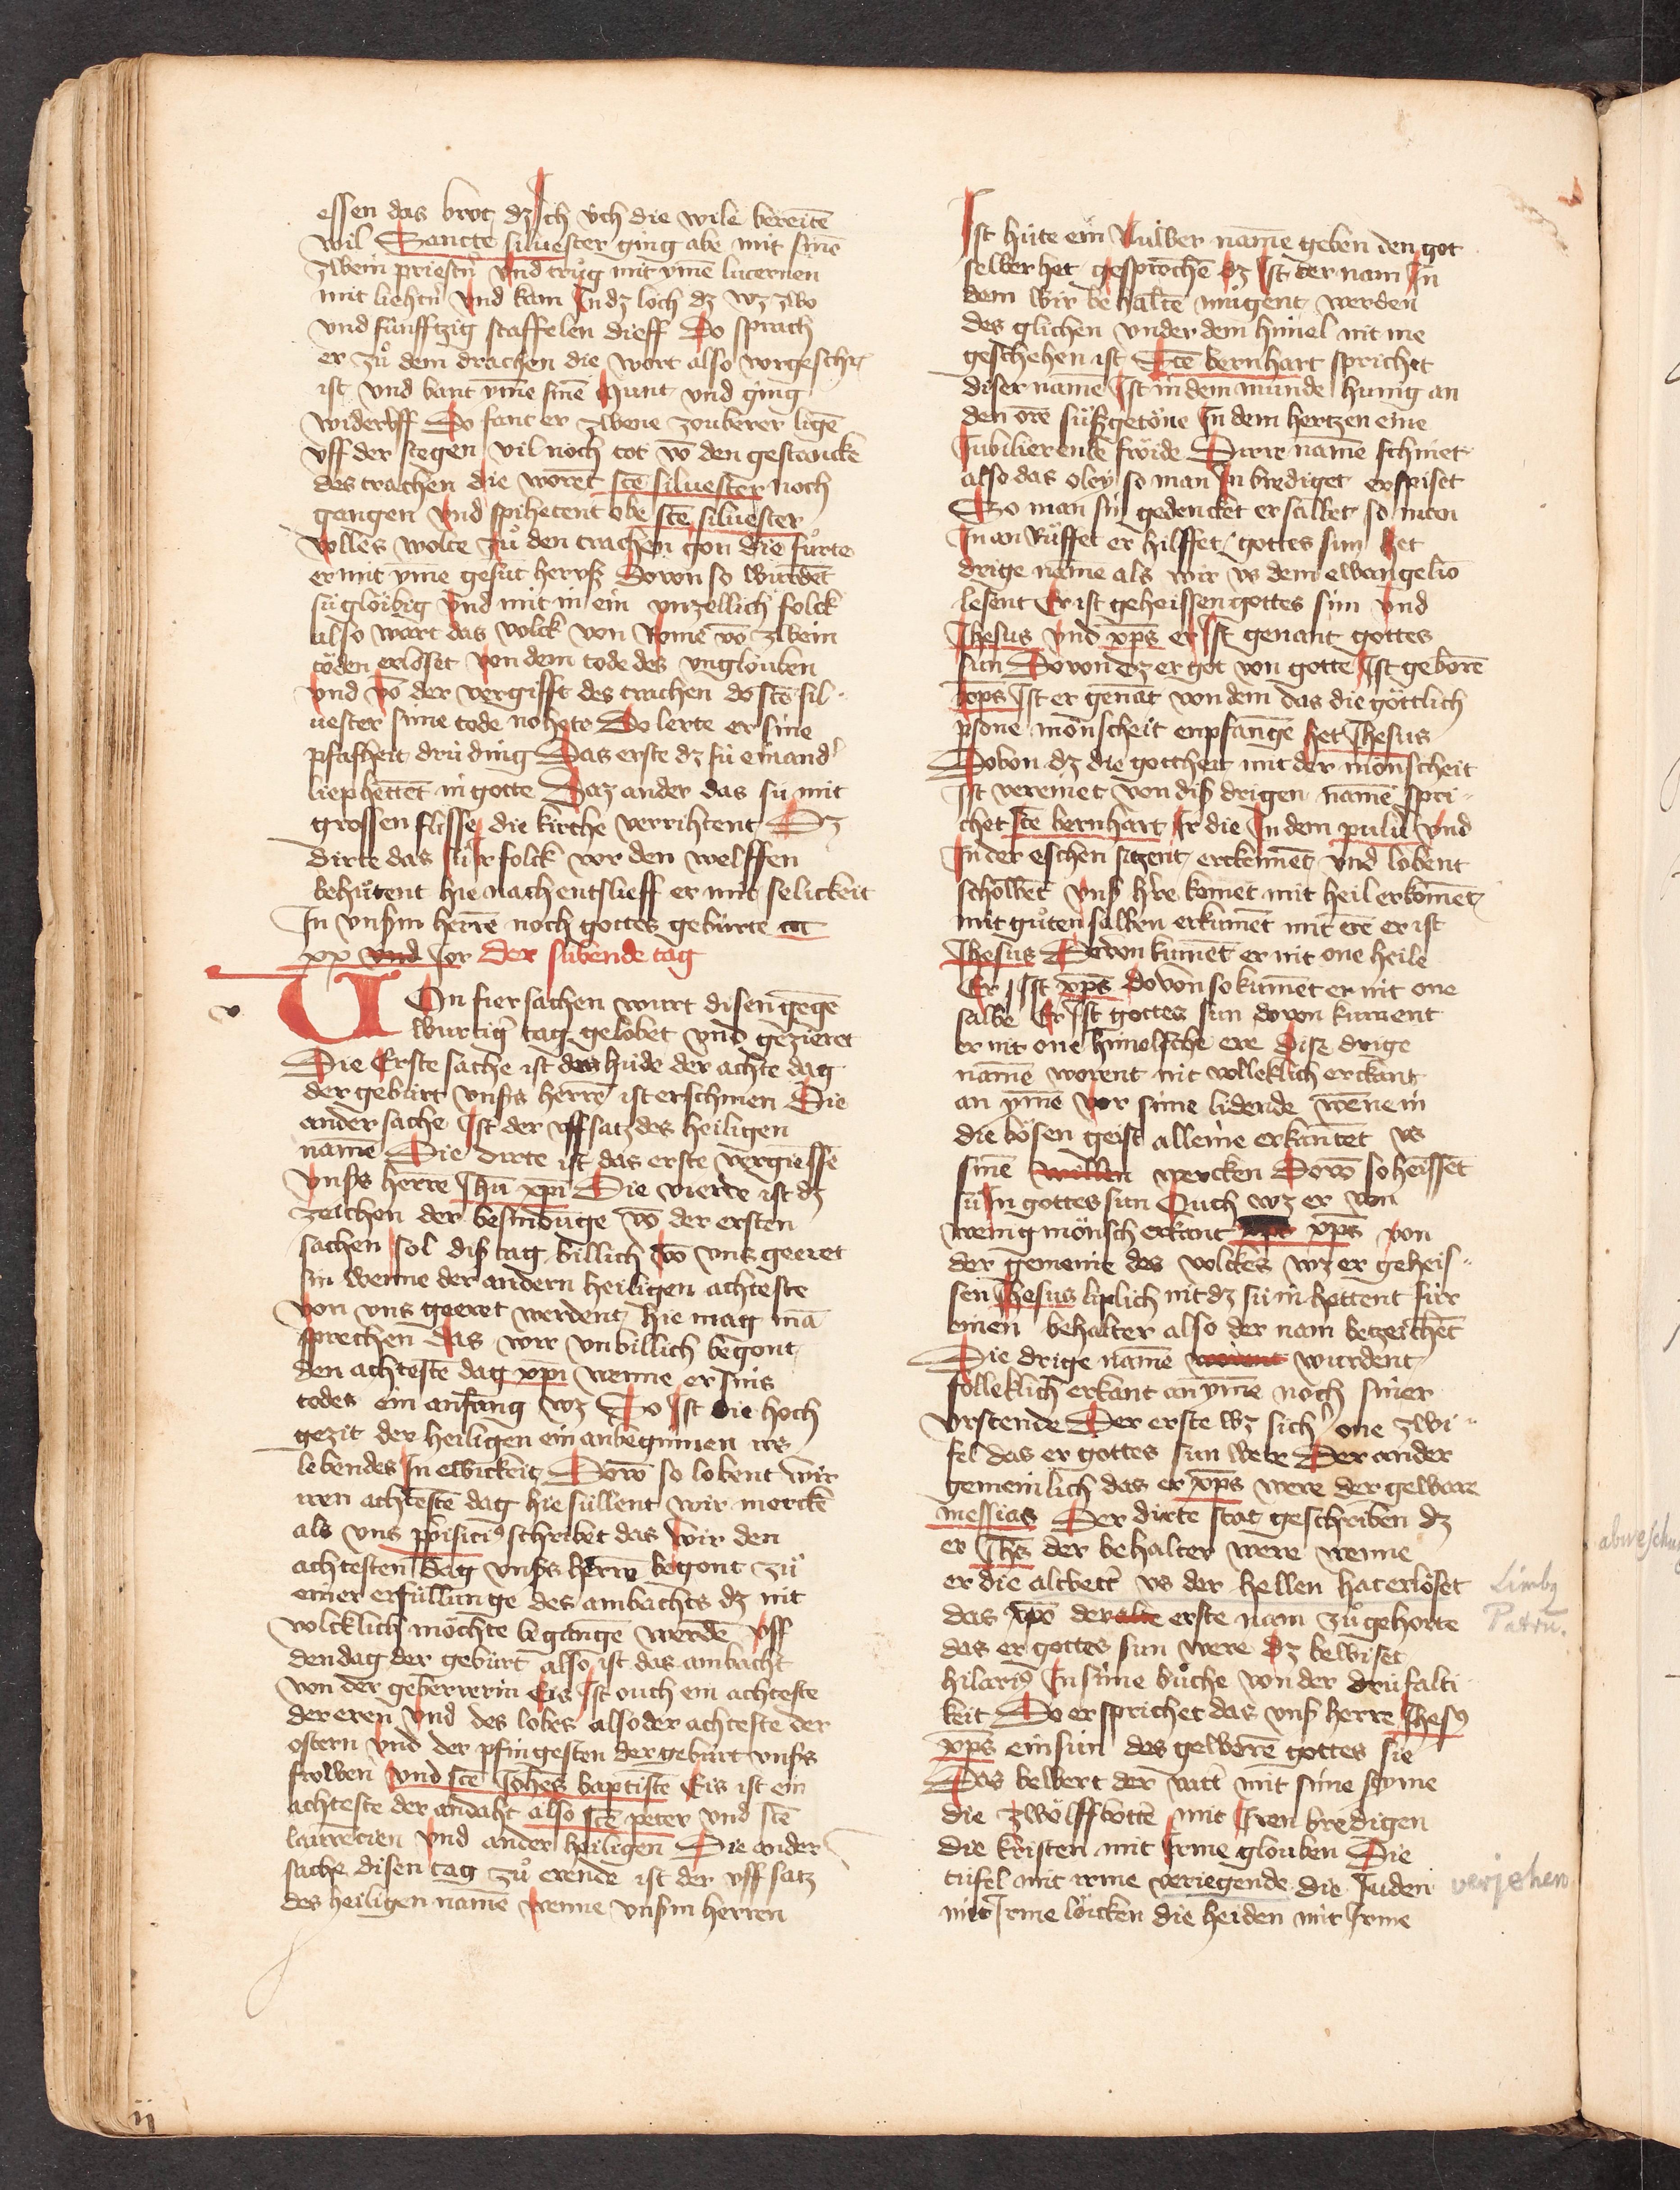 essen das brot dz Ich üch die wile bereitē
wil Sancte siluester ging abe mit sinē
zwein priestn̄ vnd trůg mit ymē lucernen
mit liehtn̄ vnd kam In dz loch dz wz zwo
vnd fünfftzig staffelen dieff Do sprach
er zů dem drachen die wort also vorgeschr̄
ist vnd bant yme sinē munt vnd ging
wider vff Do fant er zwene zouberer ligē
vff der stegen vil noch tot vō den gestancke
des trachen die worēt stē siluester noch
gangen vnd spihetent obe stē siluester
volles wolte zů den trachen gon die fůrte
er mit ymē gesūt hervß Dovon so wurdēt
sü glöibig vnd mit in ein vnzellich folck
also wart das volck von Rome vō zwein
töden erlöset von dem tode des vnglouben
vnd vō der vergifft des trachen do stē sil-
uester sime tode nohete Do lerte er sine
pfafheit drü ding Das erste dz sü einand'
liep hettēt in gotte Daz ander das sü mit
grossen flisse die kirche verrihtent Dz
dirte das sü Ir folck vor den welffen
behůtent hie nach entslieff er mit selickeit
In vnsßm herrē noch gottes gebürte ccc
xx vnd Jor Der sübende tag
VOn fier sachen wurt disen gegē
wurtig' tag gelobet vnd gezieret
Die Erste sache ist den hüde der achte dag
der geburt vnsßs herrē ist erschinen Die
ander sache Ist der vffsatz des heiligen
namē Die dirte ist das erste vergiessē
vnsßs herrē Ihū xp̄i Die vierde ist dz
zeichen der besnidūge vō der ersten
sachen sol diß tag billich vō vns geeret
sin wenne der andern heiligen achteste
von vns geeret werdent hie mag mā
sprechen das wir vnbillich begont
den achtestē dag xp̄i wenne er sins
todes ein anfang wz So Ist die hoch
gezit der heiligen ein anbeginnen irs
lebendes In ewickeit Dovō so lobent wir
iren achtestē dag hie süllent wir merckē
als vns p̄positi9 schribet das wir den
achtesten dag vnsßs herrē begont zů
einer erfüllunge des ambachts dz nit
volcklich möchte begangē werdē vff
den dag der geburt also ist das ambacht
von der geberrerin Eis Ist ouch ein achteste
der eren vnd des lobes also der achteste der
ostern vnd der pfingesten der geburt vnsßs
frowen vnd stē Iohēs baptistē Eis ist ein
achteste der andaht also stē peter vnd stē
laurencien vnd ander heiligen Die ander
sache disen tag zů erende ist der vff satz
des heiligen namē wenne vnsßm herren
Ist hüte ein nuwer name geben den got
selber het gesprochē dz Ist der nam In
dem wir behaltē mügent werden
des glichen vnder dem himel nit me
geschehen ist Stē bernhart sprichet
diser namē Ist in dem munde hunig an
den orē süßgetöne In dem hertzen eine
Iubilierende fröide Dirre namē schinet
also das oley so man In brediget er spiset
So man sin gedencket er salbet so men
In an Rüffet er hilffet gottes sun het
drige namē als wir vs dem ewangeliō
lesent Er ist geheissen gottes sun vnd
Ihesus vnd xp̄s er Ist genant gottes
sun Do von dz er got von gotte Ist geborē
xp̄s Ist er genāt von dem das die göttlich
p̄sone mönscheit enpfangē het Ihesus
Dovon dz die gottheit mit der mönscheit
ist vereinet von diß drigen namē spri-
chet stē bernhart Ir die In dem pului vnd
In der eschen sitzent erckenēt vnd lobent
schowēt vnß h're komet mit heil er komet
mit gůten salben er kumēt mit ere er ist
Ihesus Dovon kumēt er nit one heile
Er Ist xp̄s do von so kumēt er nit one
salbe Er Ist gottes sun do von kument
er nit one himelsche ere Dise drige
namē worent nit volleklich erckant
an ymē vor sime lidende wēne in
die bösen geist alleine erkantēt vs
sinē willen wercken Dovō so heissēt
sü In gottes sun Ouch wz er von
wenig mönsch erkant xp̄s von
der gemeine des volckes wz er geheis-
sen Ihesus liplich nit dz sü in hettent für
einen behalter also der nam betzeichēt
Die drige namē worent wurdent
folleklich erkant an ymē noch siner
vrstende Der erste wz sich' one zwi-
fel das er gottes sun were Der ander
gemeinlich das er xp̄s were der geware
messias Der dirte stat geschriben dz
er Ihs der behalter were wenne
er die altvett' vs der hellen hat erlöset
das xp̄o der alte erste nam zů gehorte
das er gottes sun were dz bewiset
hilari9 In sime bůche von der drifalti
keit Do er sprichet das vnß herre Ihesꝰ
xp̄s ein sun des gewerē gottes sie
Das bewert der vatt' mit sime styme
die zwölffbottē mit Iren bredigen
die kristen mit Irme glouben Die
tüfel mit irme veriegende die Juden
mit Irme löicken die heiden mit Irme
Limbg
Patrū.
verjehen
ij